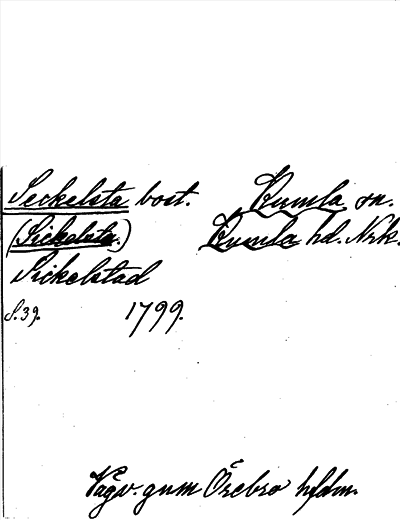 Seckelsta bost. Kumla sn.
(Sickelsta.) Kumla hd. Nrk.
Sickelstad
S.39. 1799.
Vägv. gnm Örebro hfdm.